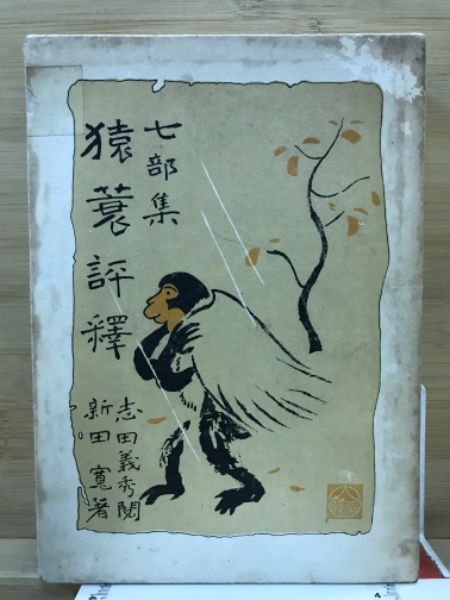 七部集
猿蓑評釋
志田義秀閱
新田寬著